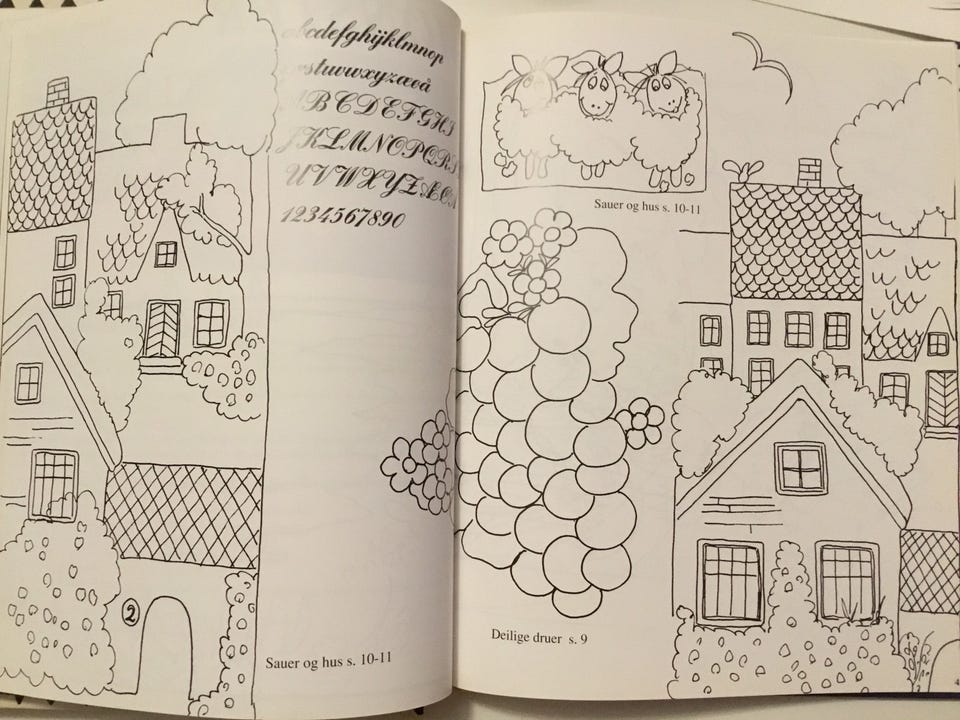 abcdefghijklmnop
rstuvwxyzæøå
ABCDEFGHI
JKLMNOPQRS
UVWXYZÆØ
1234567890
2
Sauer og hus s. 10-11
Sauer og hus s. 10-11
Deilige druer s. 9
4